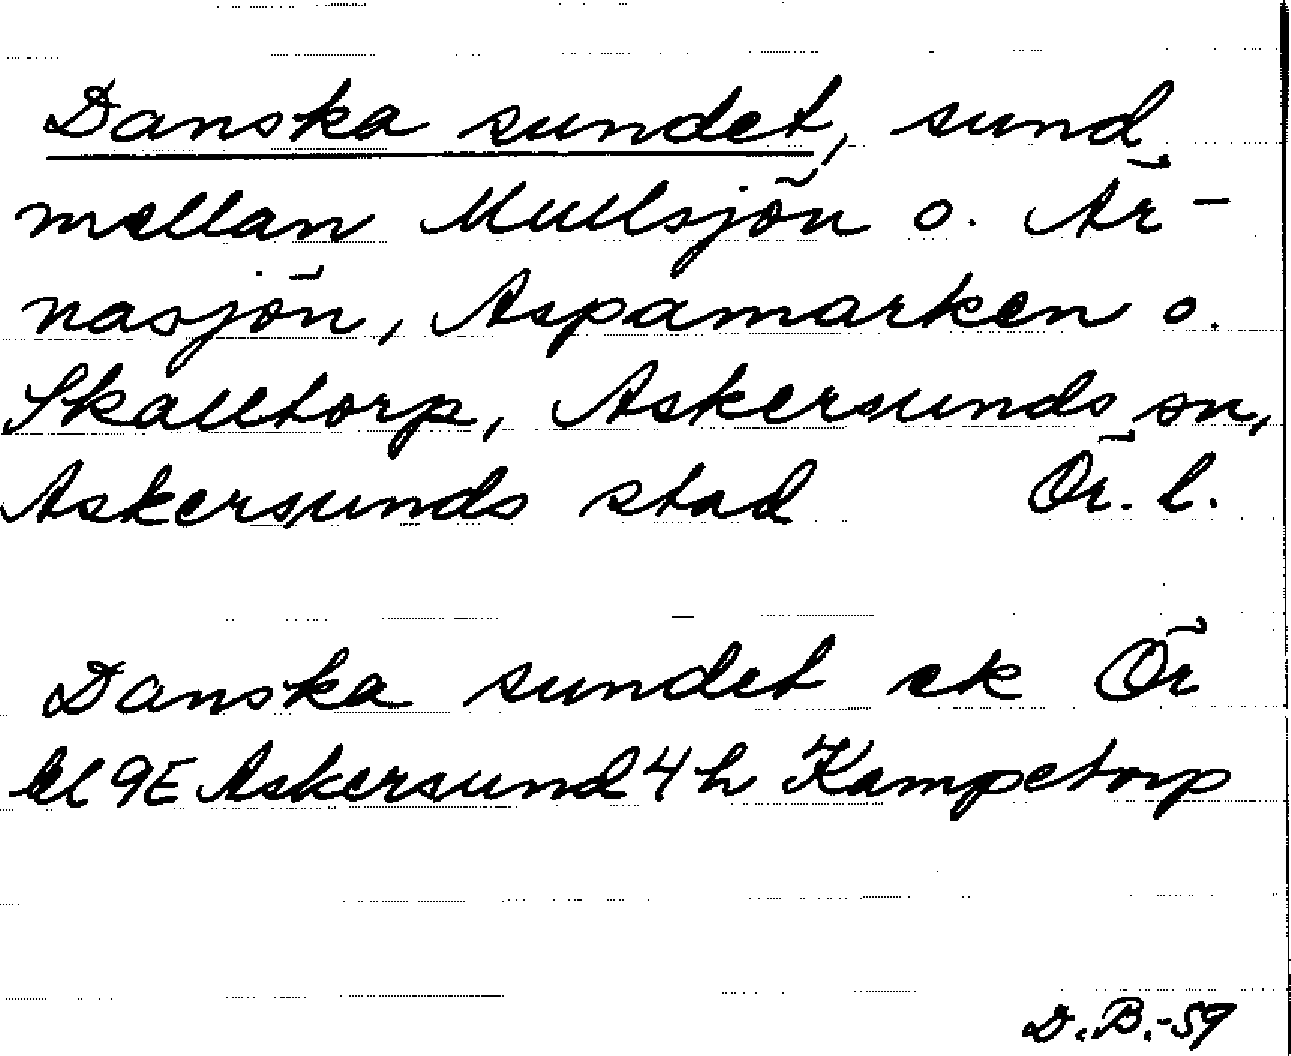 Danska sundet, sund
mellan Mullsjön o. Är-
nasjön, Aspamarken o.
Skalltorp, Askersunds sn,
Askersunds stad Ör. l.
Danska sundet ek Ör
bl 9E Askersund 4 h Kampetorp
D.B.-59